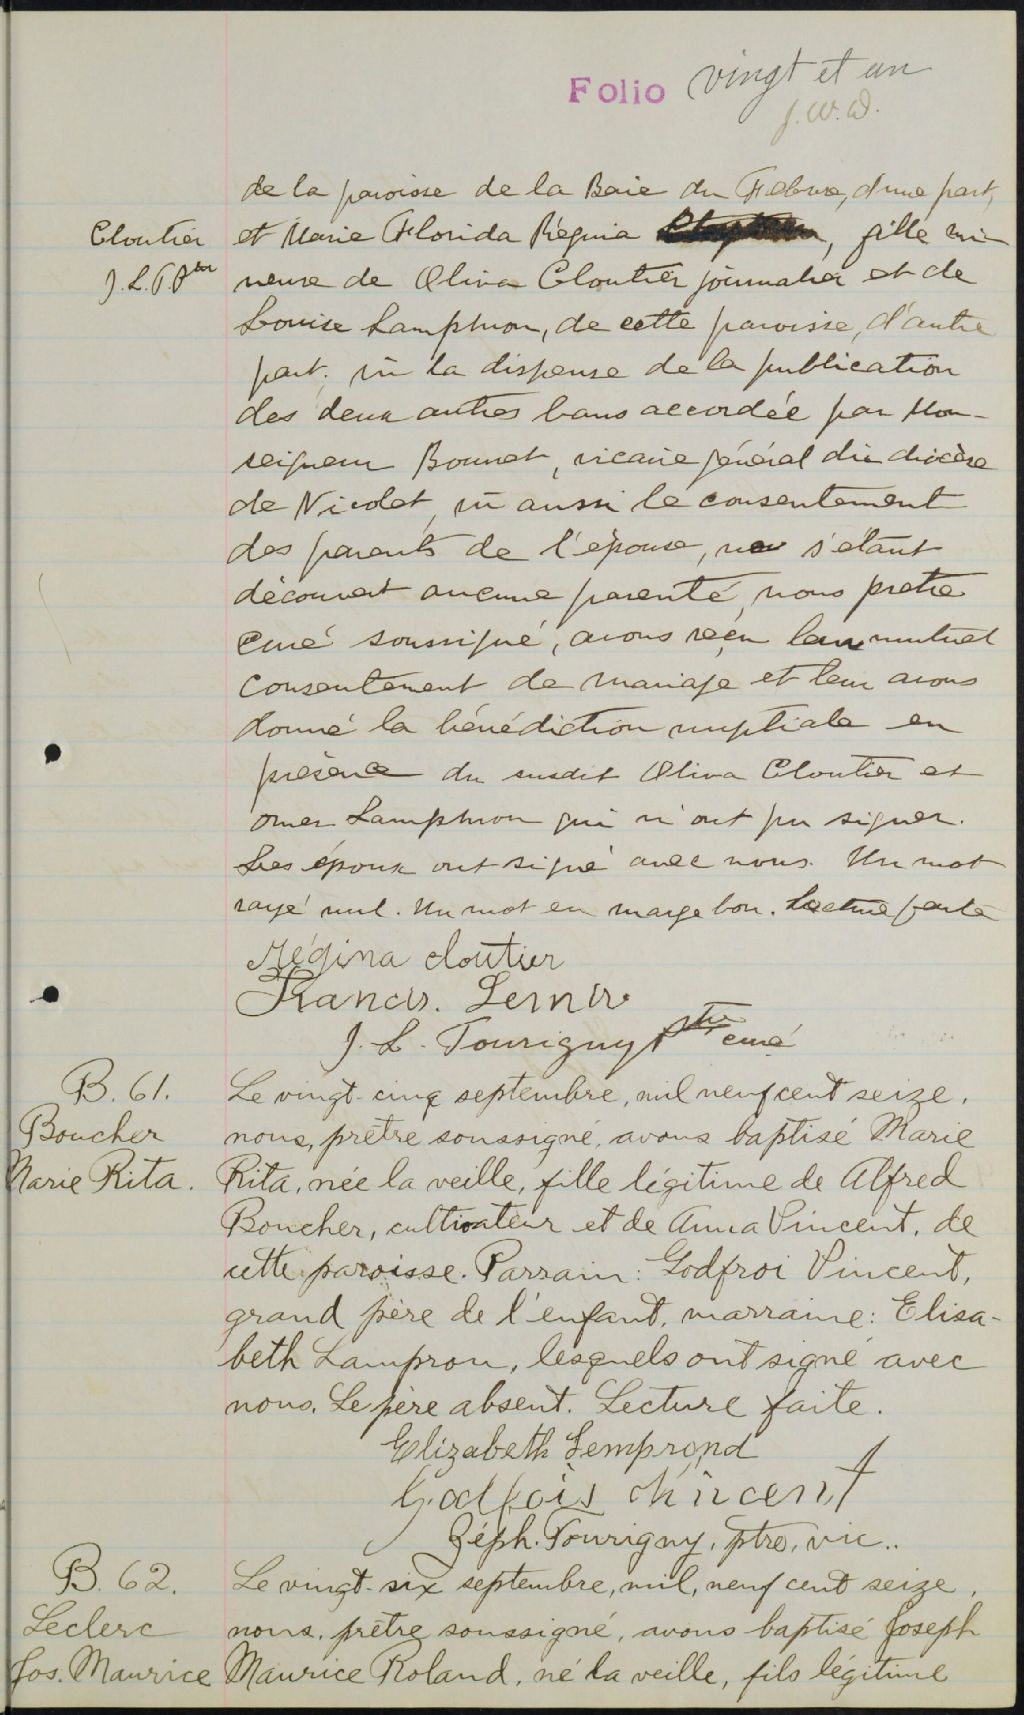 Folio vingt et un
J.W.D.
de la paroisse de la Baie du Febvre, d'une part,
Cloutier
et Marie Florida Régina, fille mi-
J.L.T. Ptre
neure de Oliva Cloutier journalier et de
Louise Lamphron, de cette paroisse, d'autre
part; vû la dispense de la publication
des deux autres bans accordée par Mon-
seigneur Bonnet, vicaire général du diocèse
de Nicolet, vû aussi le consentement
des parents de l'épouse, ne s'étant
découvert aucune parenté, nous prêtre
curé soussigné, avons reçu leur mutuel
consentement de mariage et leur avons
donné la bénédiction nuptiale en
présence du susdit Oliva Cloutier et
Omer Lamphron qui n'ont pu signer.
Les époux ont signé avec nous. Un mot
rayé nul. Un mot en marge bon. Lecture faite
Régina cloutier
Francis.
J. L. Tourigny ptre curé
B. 61.
Boucher
Marie Rita.
Le vingt-cinq septembre, mil neuf cent seize,
nous, prêtre soussigné, avons baptisé Marie
Rita, née la veille, fille légitime de Alfred
Boucher, cultivateur et de Anna Vincent, de
cette paroisse. Parrain: Godfroi Vincent,
grand père de l'enfant, marraine: Elisa-
beth Lampron, lesquels ont signé avec
nous. Le père absent. Lecture faite.
Elizabeth Lemprond
Godfois Vincent
Zéph. Tourigny, ptre, vic..
B. 62.
Leclerc
Jos. Maurice
Le vingt-six septembre, mil, neuf cent seize,
nous, prêtre soussigné, avons baptisé Joseph
Maurice Roland, né la veille, fils légitime